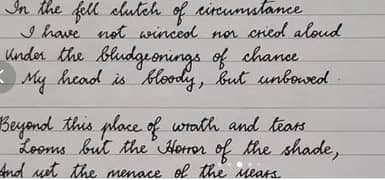 In the fell clutch of circumstance
I have not winced nor cried aloud
Under the bludgeonings of chance
My head is bloody, but unbowed.
Beyond this place of wrath and tears
Looms but the Horror of the shade,
And yet the menace of the years